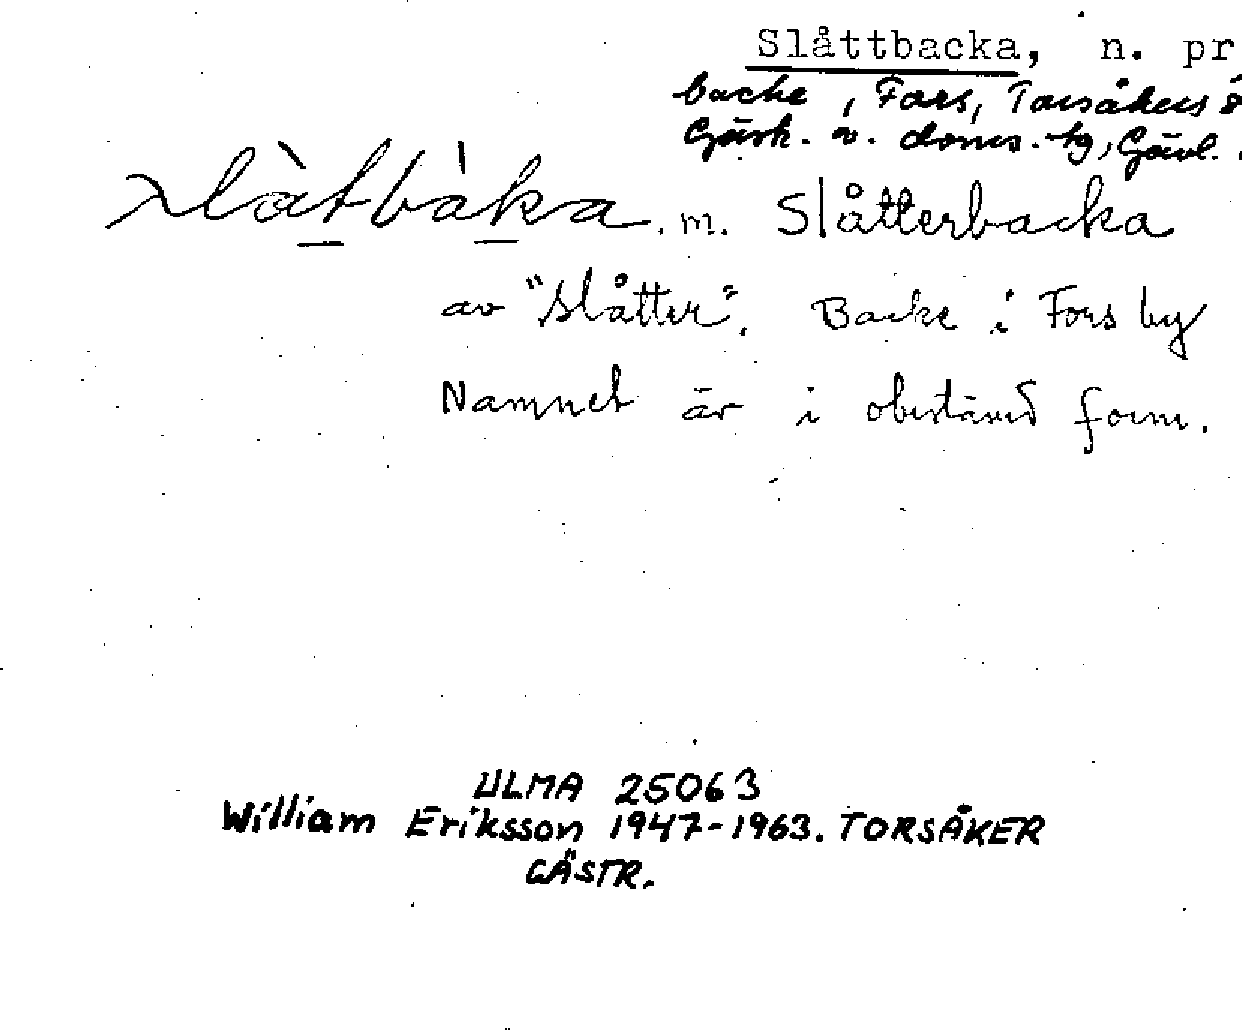 Slåttbacka, n. pr
backe, Fors, Torsåkers s
Gästr. ö. doms. tg, Gävl.
slàtbàka. m. Slåtterbacka
av "slåtter". Backe i Fors by
Namnet är i obestämd form.
ULMA 25063
William Eriksson 1947-1963. TORSÅKER
GÄSTR.